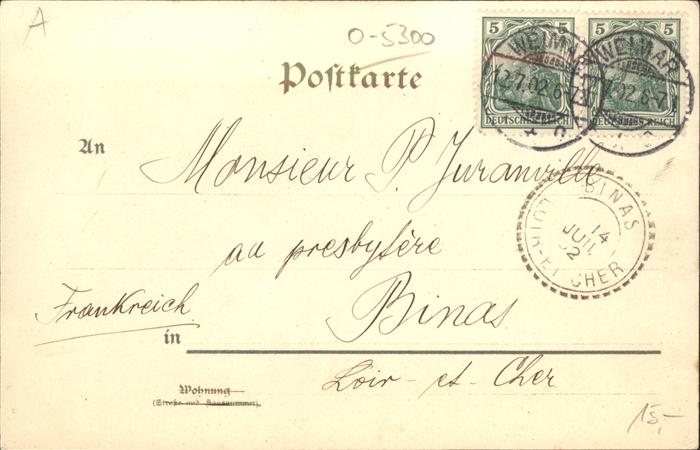 A
O-5300
Postkarte
5 5
5 5
DEUTSCHES REICH
DEUTSCHES REICH
WEIMAR
12.7.02.6-7N
WEIMAR
7.02.6-7N
An
Monsieur P. Juranville
au presbytère
Frankreich
Binas
in
Loir-et-Cher
BINAS
14
JUIL
02
LOIR-ET-CHER
Wohnung
(Straße und Hausnummer).
15,-